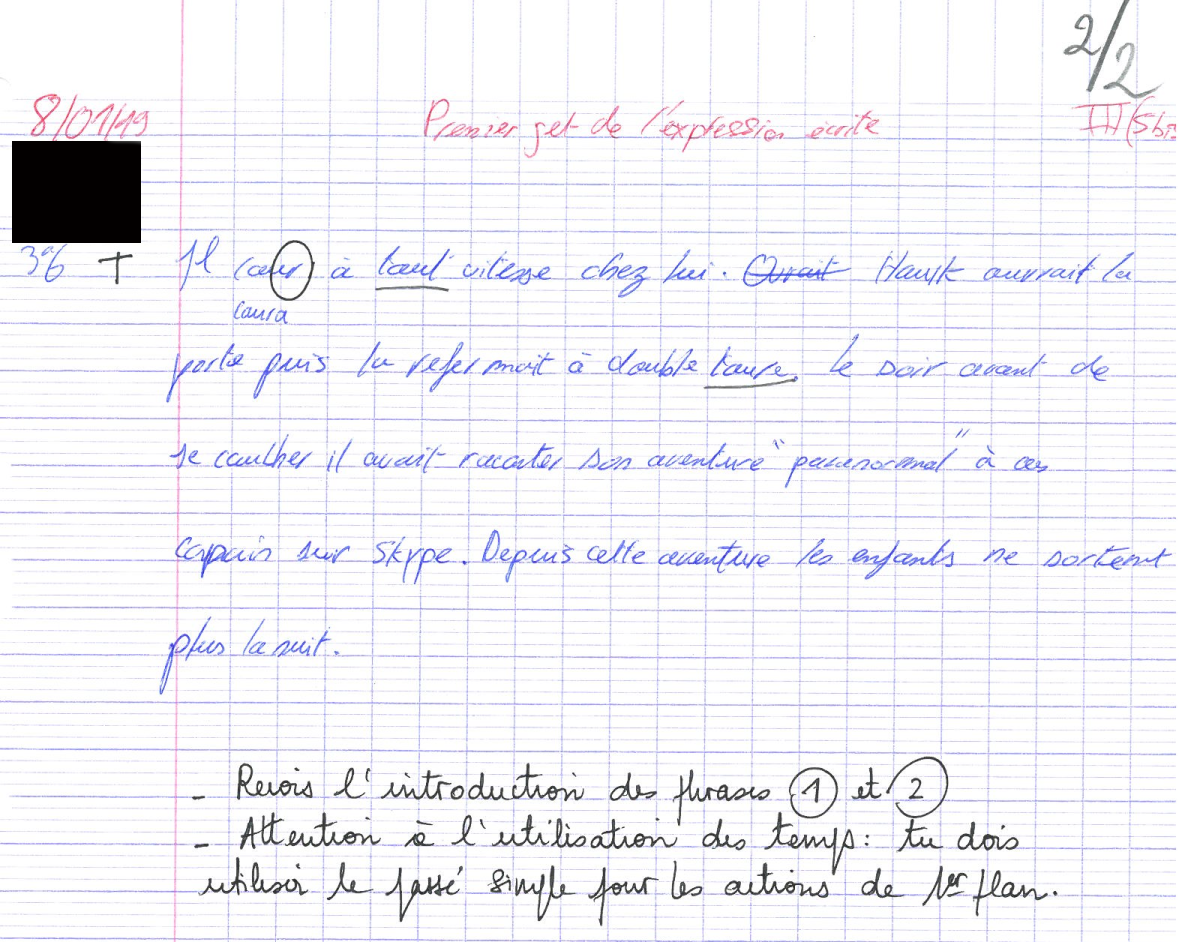 2/2
8/01/19 Premier jet de l'expression écrite III(5bis
3e6 + Il cour à tout vitesse chez lui. Ouvrait Hawk ouvrait la
coura
porte puis la refermait à double toure. Le soir avant de
se coucher il avait raconter son aventure "paranormal" à ces
copain sur Skype. Depuis cette aventure les enfants ne sortent
plus la nuit.
- Revois l'introduction des phrases 1 et 2
- Attention à l'utilisation des temps : tu dois
utiliser le passé simple pour les actions de 1er plan.